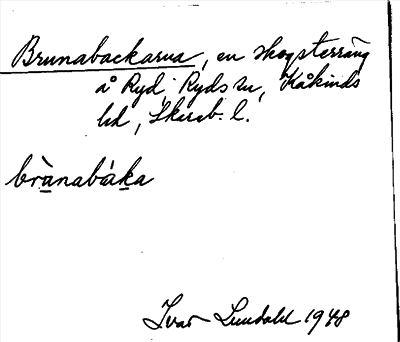 Brunabackarna, en skogsterräng
å Ryd Ryds sn, Kåkinds
hd, Skarab. l.
brànabáka
Ivar Lundahl 1948